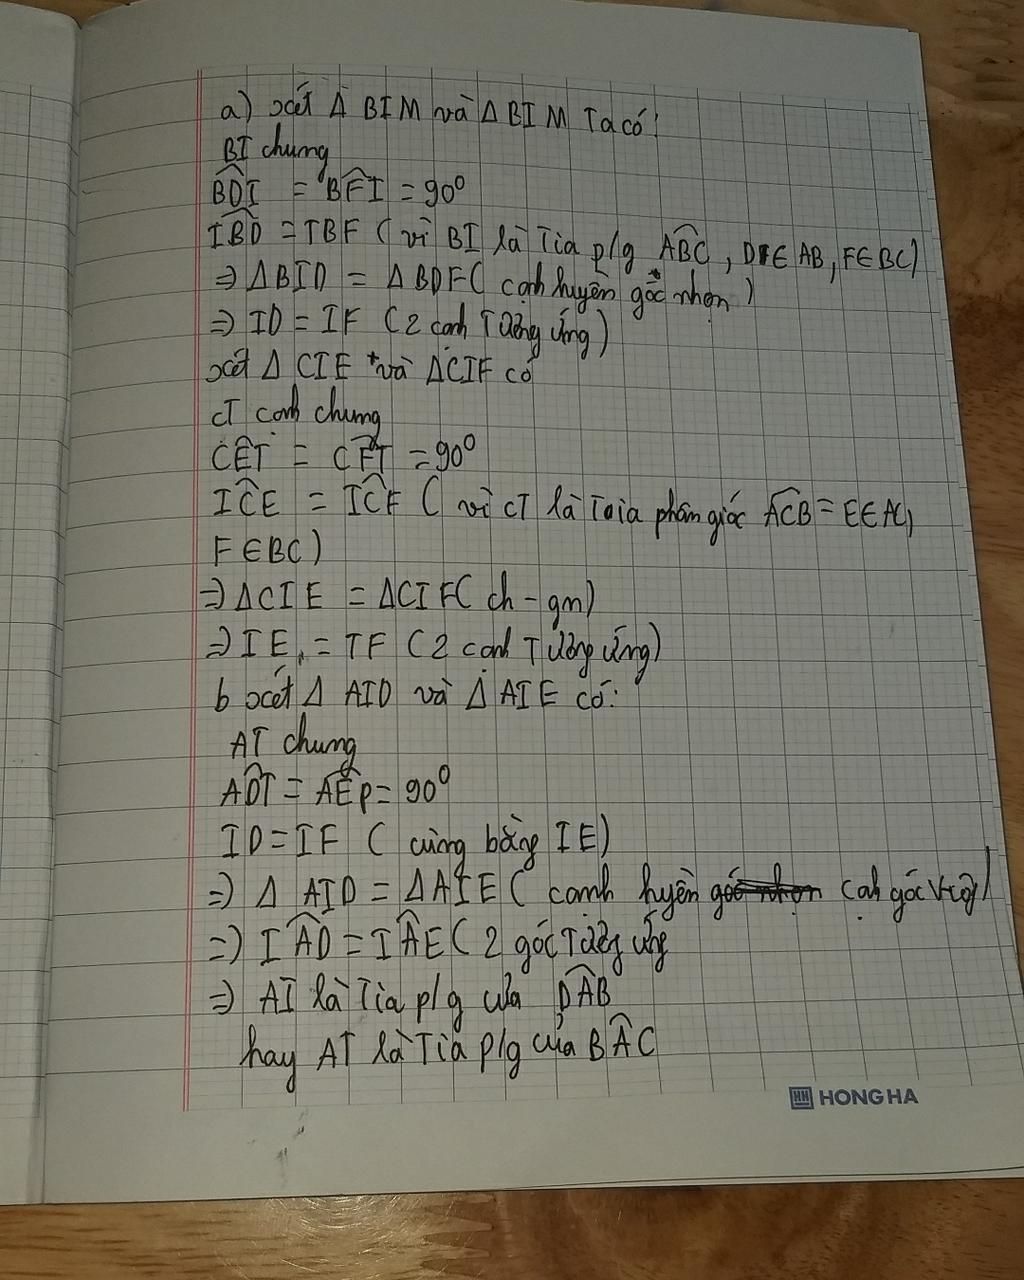 a) xét Δ BIM và Δ BIM Ta có:
BI chung
BDI = BFI = 90⁰
IBD = IBF ( vì BI là Tia p/g ABC, D∈ AB, F∈ BC)
⇒ ΔBID = ΔBDF( cạnh huyền góc nhọn )
⇒ ID = IF (2 cạnh Tương ứng)
xét Δ CIE và ΔCIF có
CI cạnh chung
CEI = CFI = 90⁰
ICE = ICF ( vì CI là Taia phân giác ACB = E∈ AC,
F ∈ BC)
⇒ ΔCIE = ΔCIF( ch - gn)
⇒ IE = IF (2 cạnh Tương ứng)
b xét Δ AID và Δ AIE có:
AI chung
ADI = AEP= 90⁰
ID = IF ( cùng bằng IE)
⇒ Δ AID = ΔAIE ( canh huyền cạh góc
⇒ IAD = IAE ( 2 góc Tương ứng
⇒ AI là Tia p/g của DAB
hay AI là Tia p/g của BAC
HH HONG HA